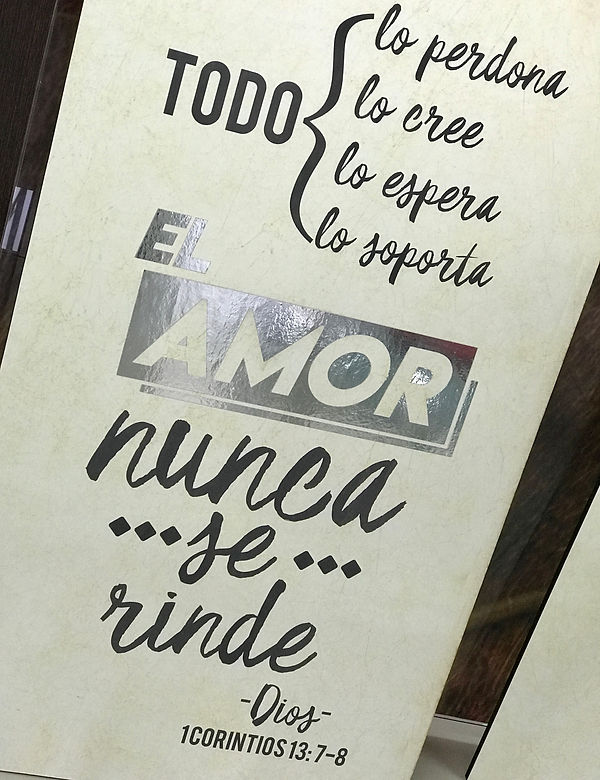 TODO
lo perdona
lo cree
lo espera
lo soporta
EL
AMOR
nunca
...se...
rinde
-Dios-
1 CORINTIOS 13: 7-8